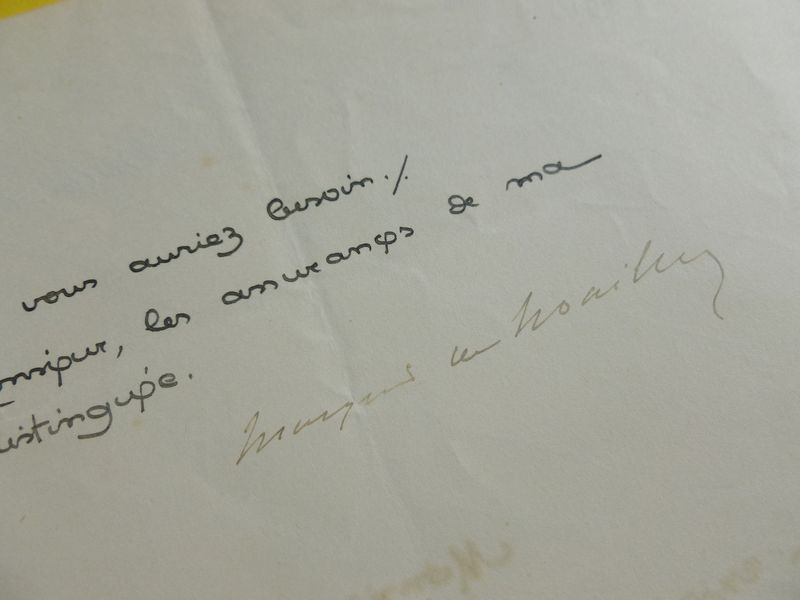 vous auriez besoin./.
onsieur, les assurances de ma
distinguée.
Marquis de Noailles